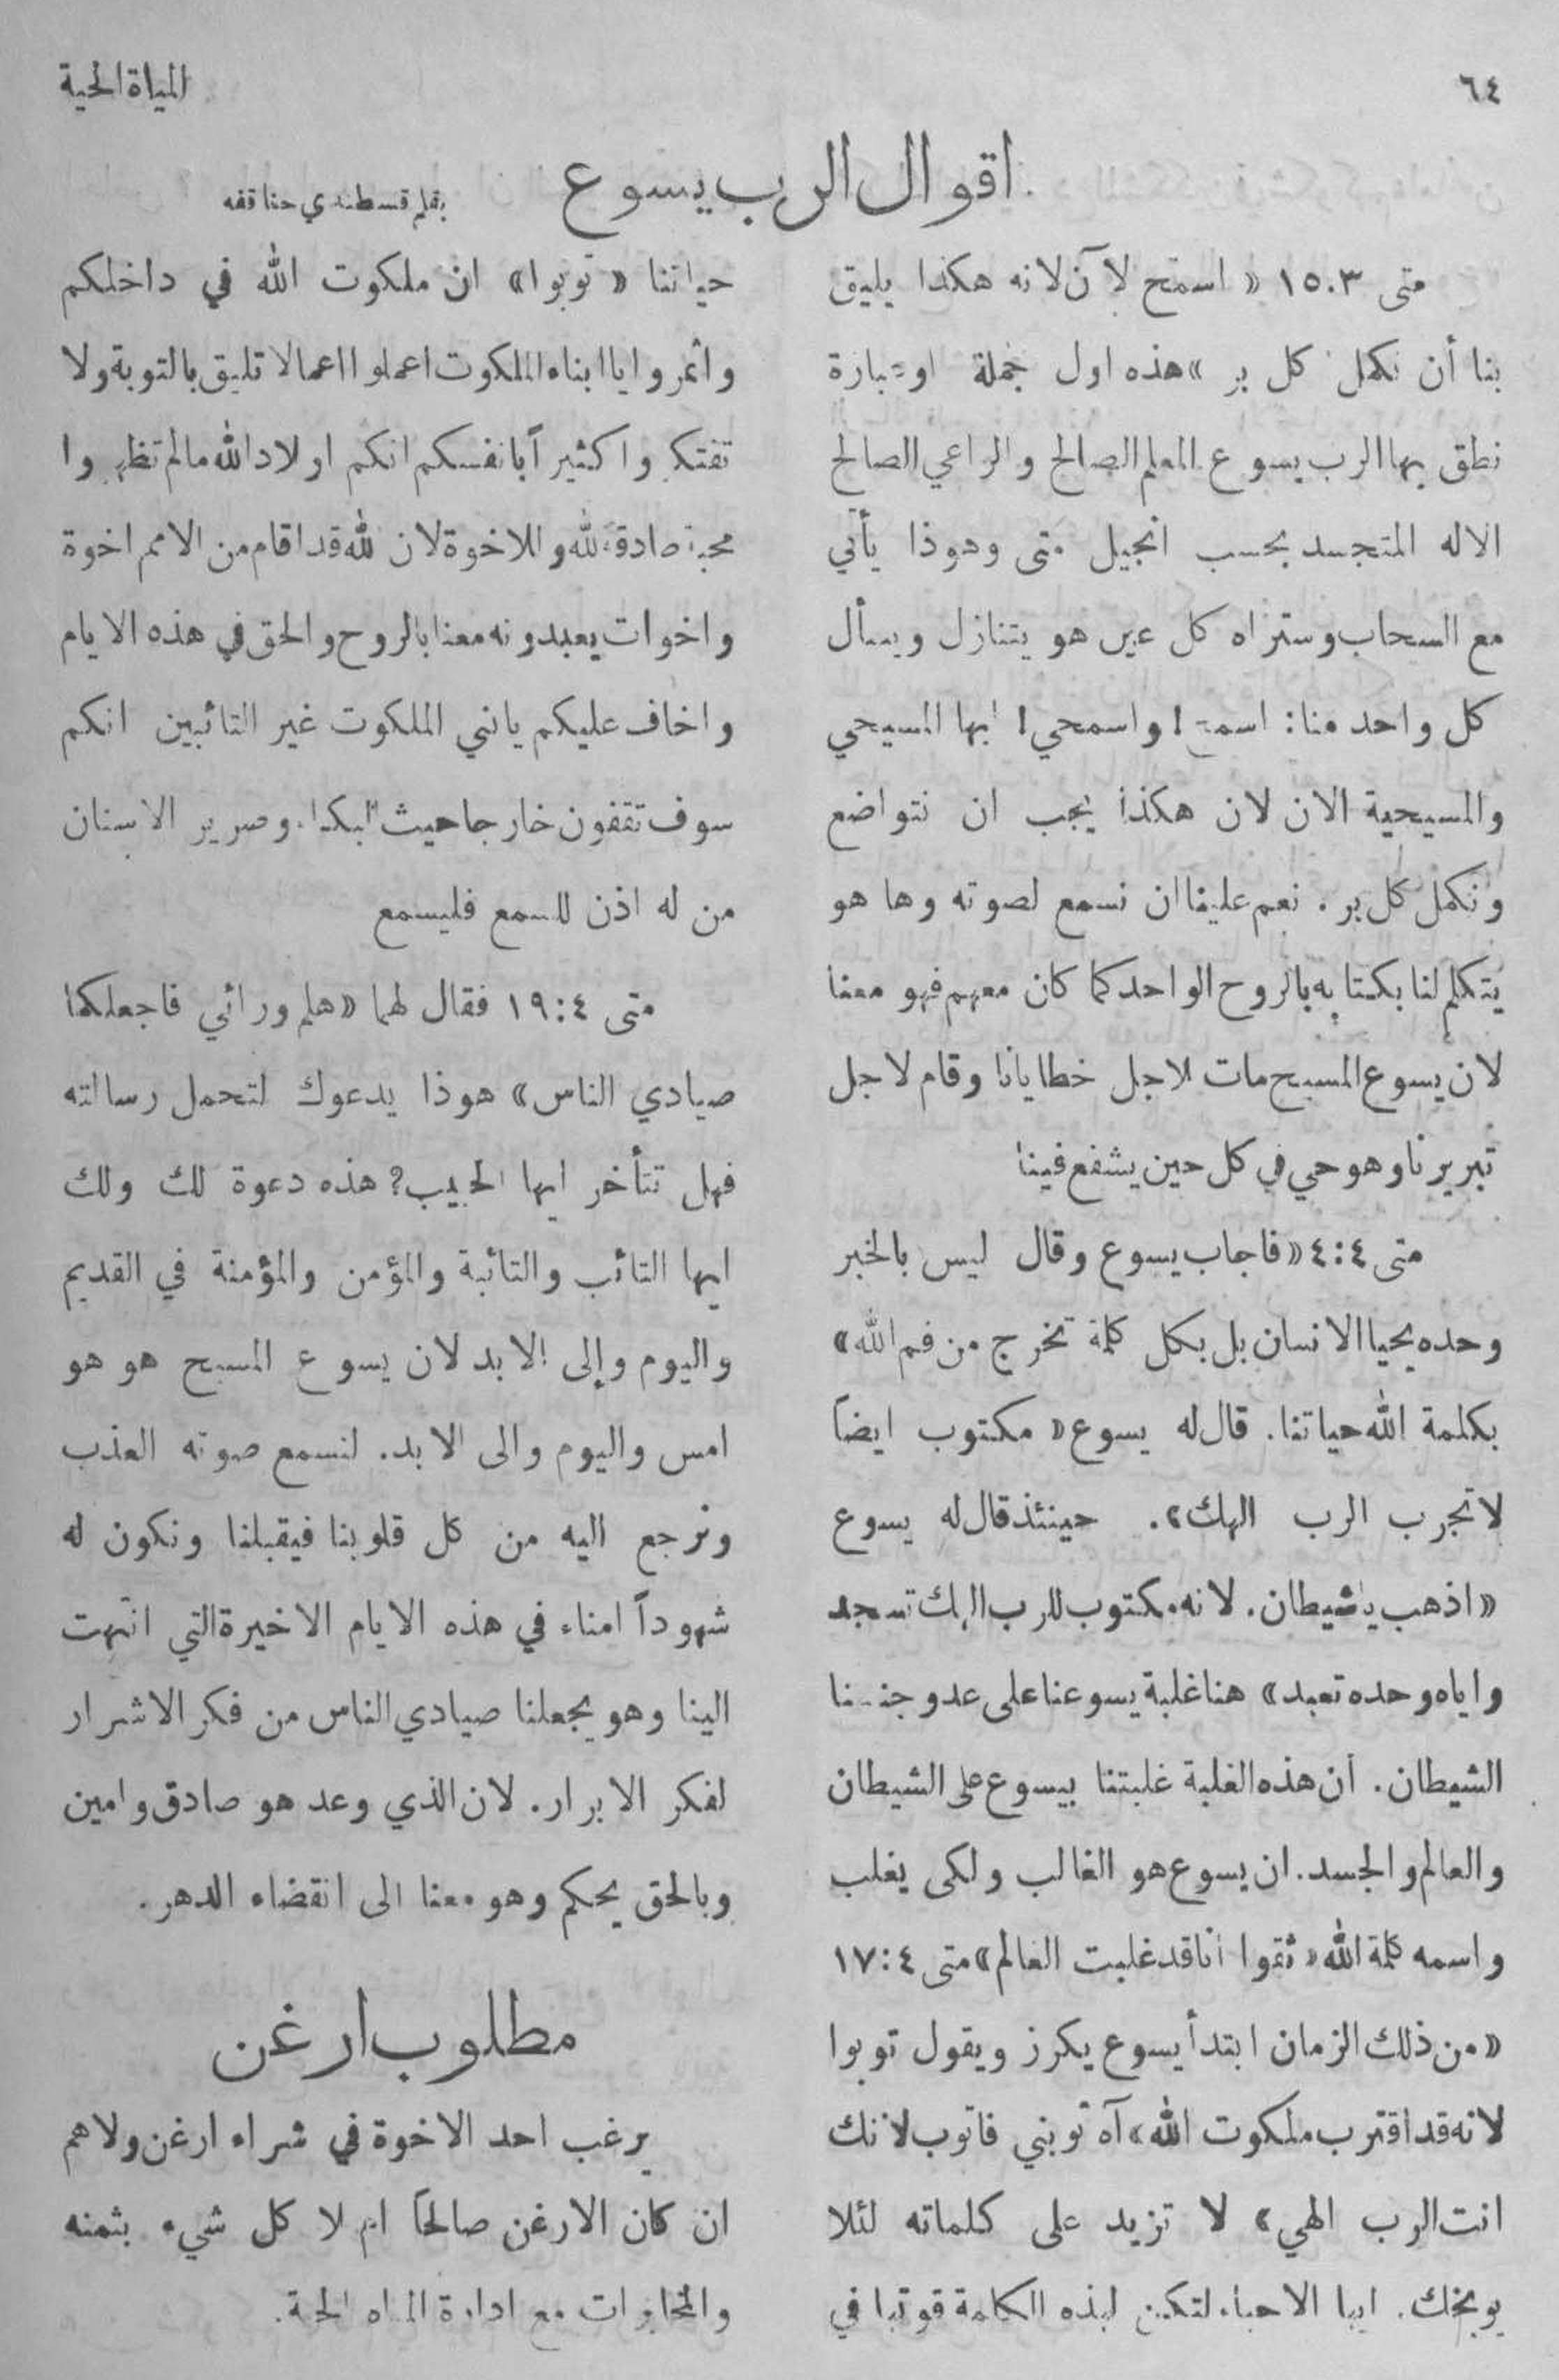 ٦٤
المياة الحية
اقوال الرب يسوع
بقلم قسطندي حنا قفه
متى ١٥.٣ « اسمح لآن لانه هكذا يليق
بنا أن نكمل كل بر » هذه اول جملة او عبارة
نطق بها الرب يسوع المعلم الصالح والراعي الصالح
الاله المتجسد بحسب انجيل متى وهوذا يأتي
مع السحاب وستراه كل عين هو يتنازل ويسأل
كل واحد منا: اسمح! واسمحي! ايها المسيحي
والمسيحية الان لان هكذا يجب ان نتواضع
ونكمل كل بر . نعم علينا ان نسمع لصوته وها هو
يتكلم لنا بكتابه بالروح الواحد كما كان معهم فهو معنا
لان يسوع المسيح مات لاجل خطايانا وقام لاجل
تبريرنا وهو حي في كل حين يشفع فينا
متى ٤:٤ « فاجاب يسوع وقال ليس بالخبر
وحده يحيا الانسان بل بكل كلمة تخرج من فم الله »
بكلمة الله حياتنا. قال له يسوع « مكتوب ايضاً
لا تجرب الرب الهك ». حينئذ قال له يسوع
« اذهب ياشيطان. لانه مكتوب للرب الهك تسجد
واياه وحده تعبد » هنا غلبة يسوعنا على عدو جنسنا
الشيطان. أن هذه الغلبة غلبتنا بيسوع على الشيطان
والعالم والجسد. ان يسوع هو الغالب ولكى يغلب
واسمه كلمة الله « ثقوا انا قد غلبت العالم » متى ١٧:٤
« من ذلك الزمان ابتدأ يسوع يكرز ويقول توبوا
لانه قد اقترب ملكوت الله » آه توبني فاتوب لانك
انت الرب الهي » لا تزيد على كلماته لئلا
يوبخك. ايها الاحباء لتكن لهذه الكلمة قوتها في
حياتنا « توبوا » ان ملكوت الله في داخلكم
واثمروا ياابناء الملكوت اعملوا اعمالا تليق بالتوبة ولا
تفتكروا كثيراً بانفسكم انكم اولاد الله مالم تظهروا
محبة صادقة لله وللاخوة لان لله قد اقام من الامم اخوة
واخوات يعبدونه معنا بالروح والحق في هذه الايام
واخاف عليكم يابني الملكوت غير التائبين انكم
سوف تقفون خارجا حيث البكاء وصرير الاسنان
من له اذن للسمع فليسمع
متى ١٩:٤ فقال لهما « هلم ورائي فاجعلكما
صيادي الناس » هوذا يدعوك لتحمل رسالته
فهل تتأخر ايها الحبيب؟ هذه دعوة لك ولك
ايها التائب والتائبة والمؤمن والمؤمنة في القديم
واليوم وإلى الابد لان يسوع المسيح هو هو
امس واليوم والى الابد. لنسمع صوته العذب
ونرجع اليه من كل قلوبنا فيقبلنا ونكون له
شهوداً امناء في هذه الايام الاخيرة التي انتهت
الينا وهو يجعلنا صيادي الناس من فكر الاشرار
لفكر الابرار. لان الذي وعد هو صادق وامين
وبالحق يحكم وهو معنا الى انقضاء الدهر.
مطلوب ارغن
يرغب احد الاخوة في شراء ارغن ولاهم
ان كان الارغن صالحاً ام لا كل شيء بثمنه
والمخابرات مع ادارة المياه الحية.